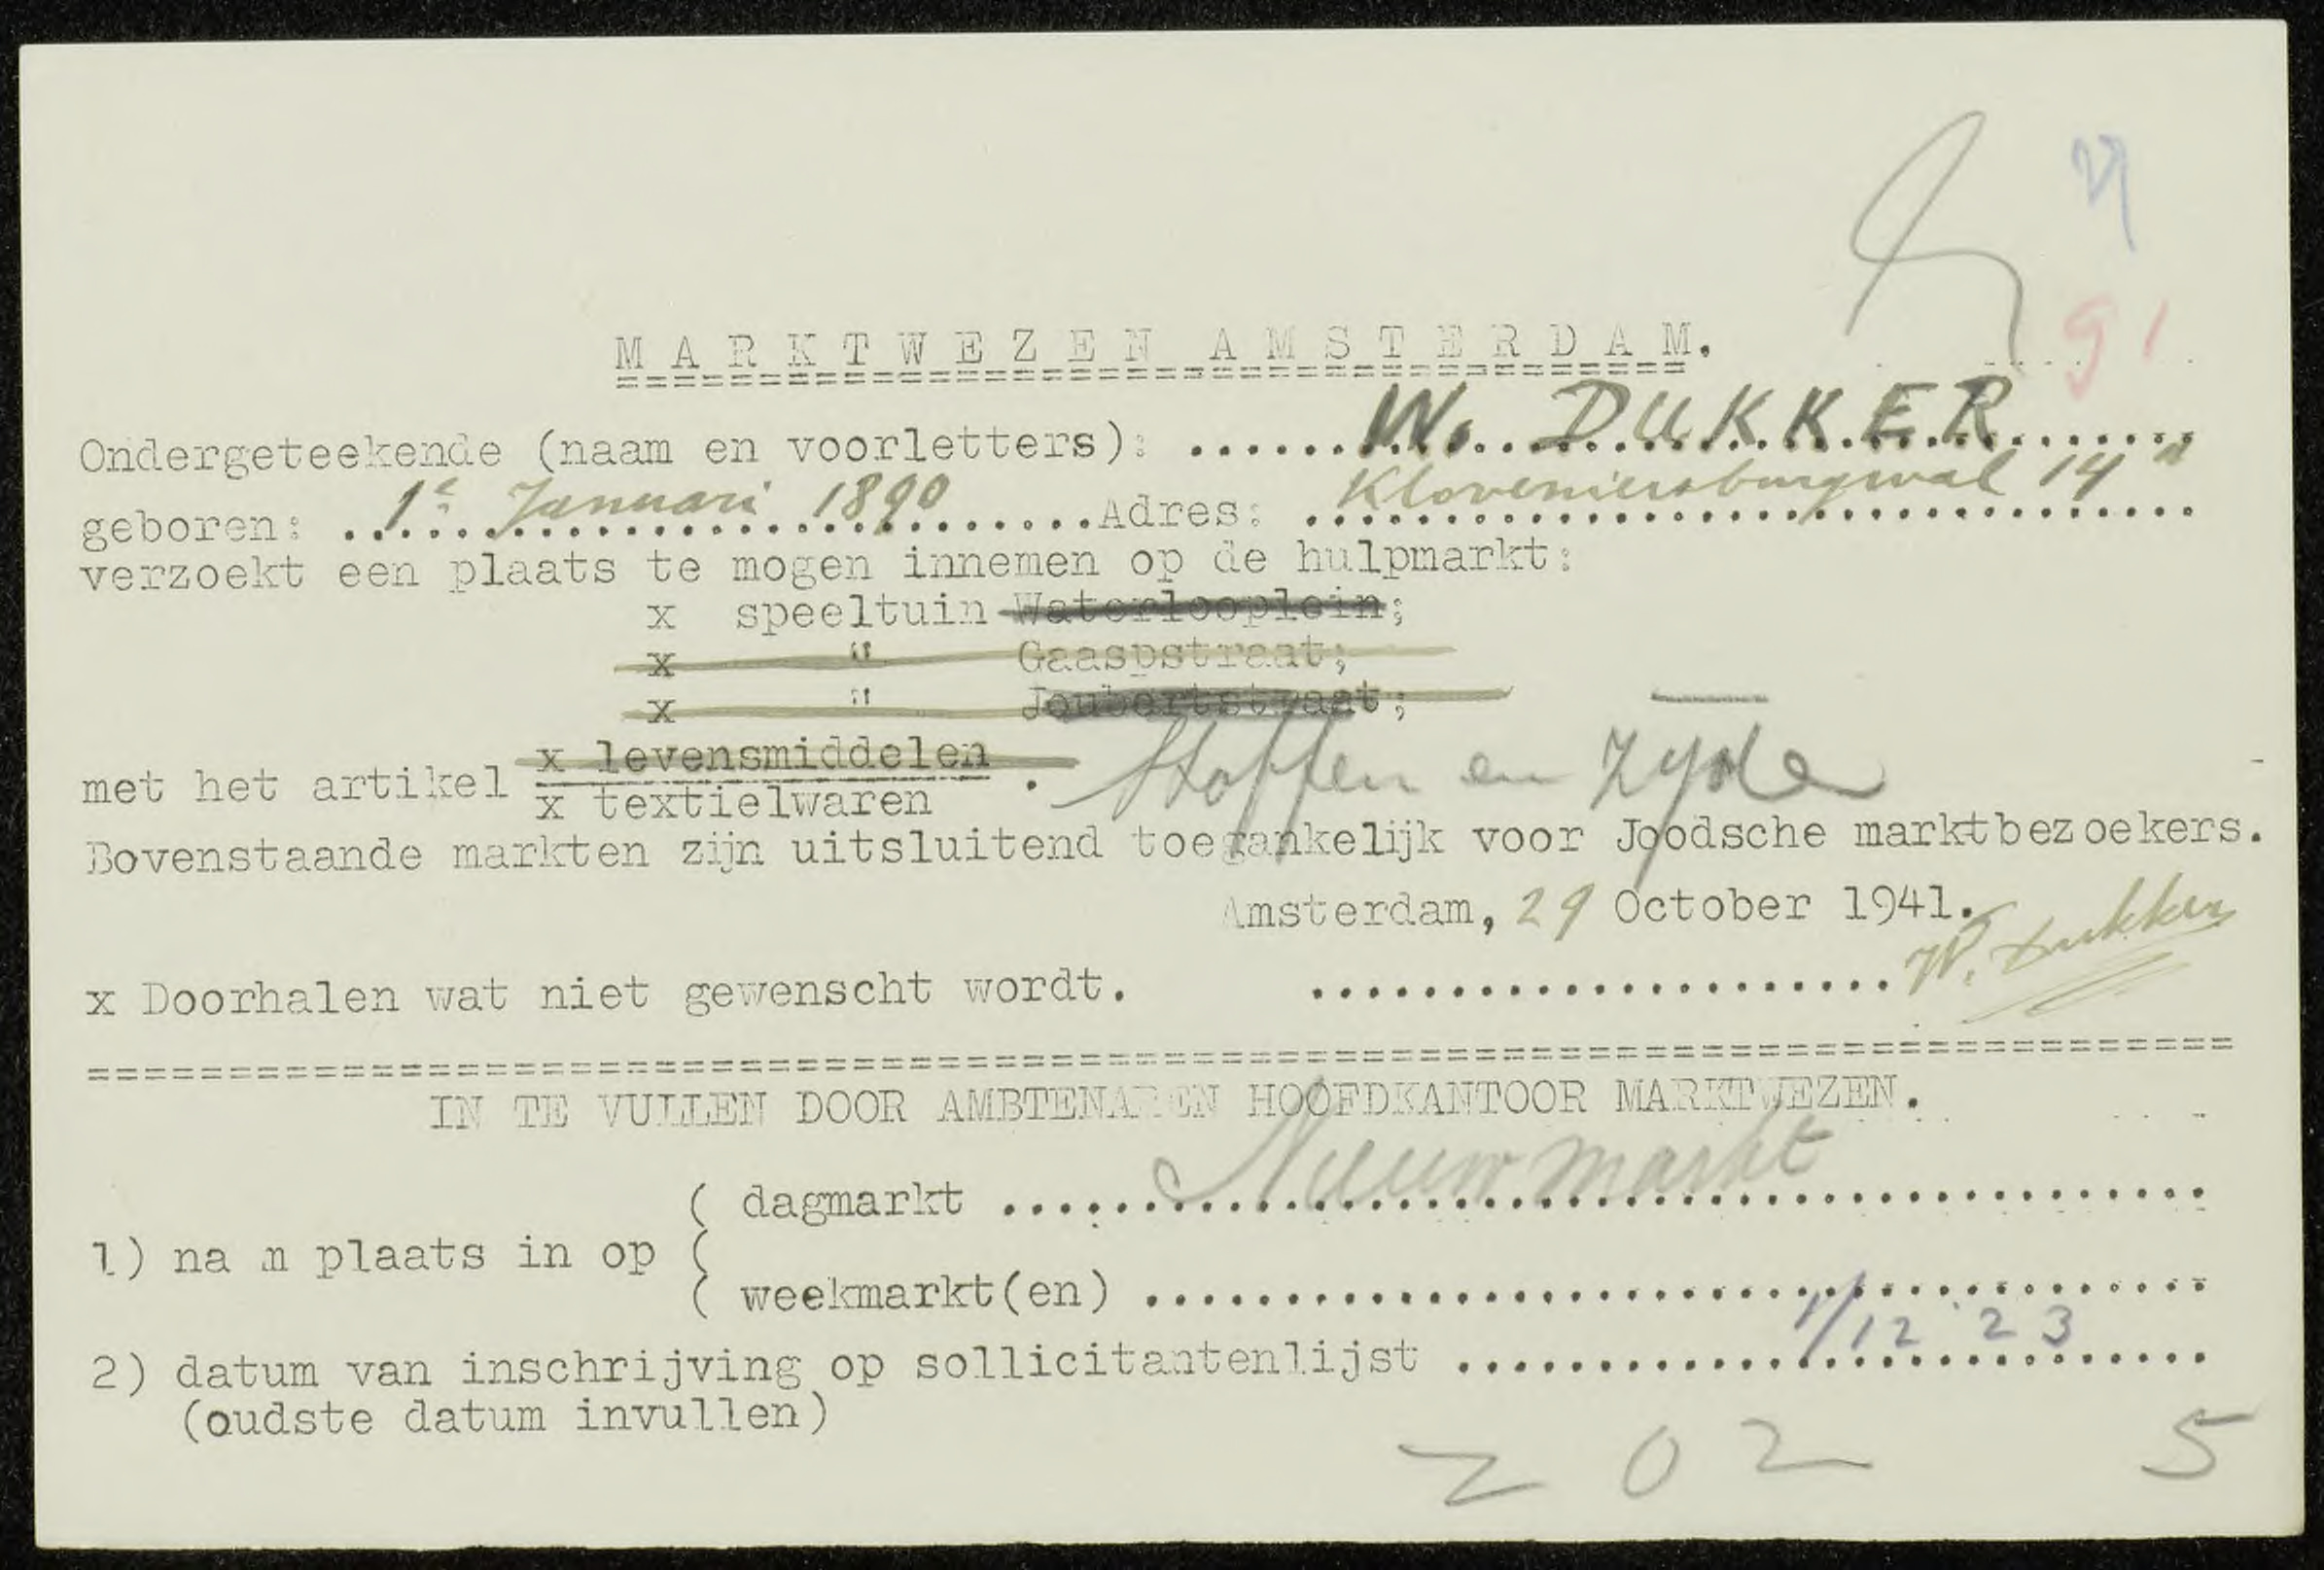 91
MARKTWEZEN AMSTERDAM.
Ondergeteekende (naam en voorletters): W. DUKKER
geboren: 1e Januari 1890 Adres: Kloveniersburgwal 14
verzoekt een plaats te mogen innemen op de hulpmarkt:
x speeltuin Waterlooplein;
x " Gaaspstraat;
x " Joubertstraat;
met het artikel x levensmiddelen
x textielwaren . Stoffen en Zyde
Bovenstaande markten zijn uitsluitend toegankelijk voor Joodsche marktbezoekers.
Amsterdam, 29 October 1941.
x Doorhalen wat niet gewenscht wordt. W. Dukker
IN TE VULLEN DOOR AMBTENAREN HOOFDKANTOOR MARKTWEZEN.
( dagmarkt Nieuwmarkt
1) na m plaats in op (
( weekmarkt(en)
2) datum van inschrijving op sollicitantenlijst 1/12 '23
(oudste datum invullen)
Z 02 5